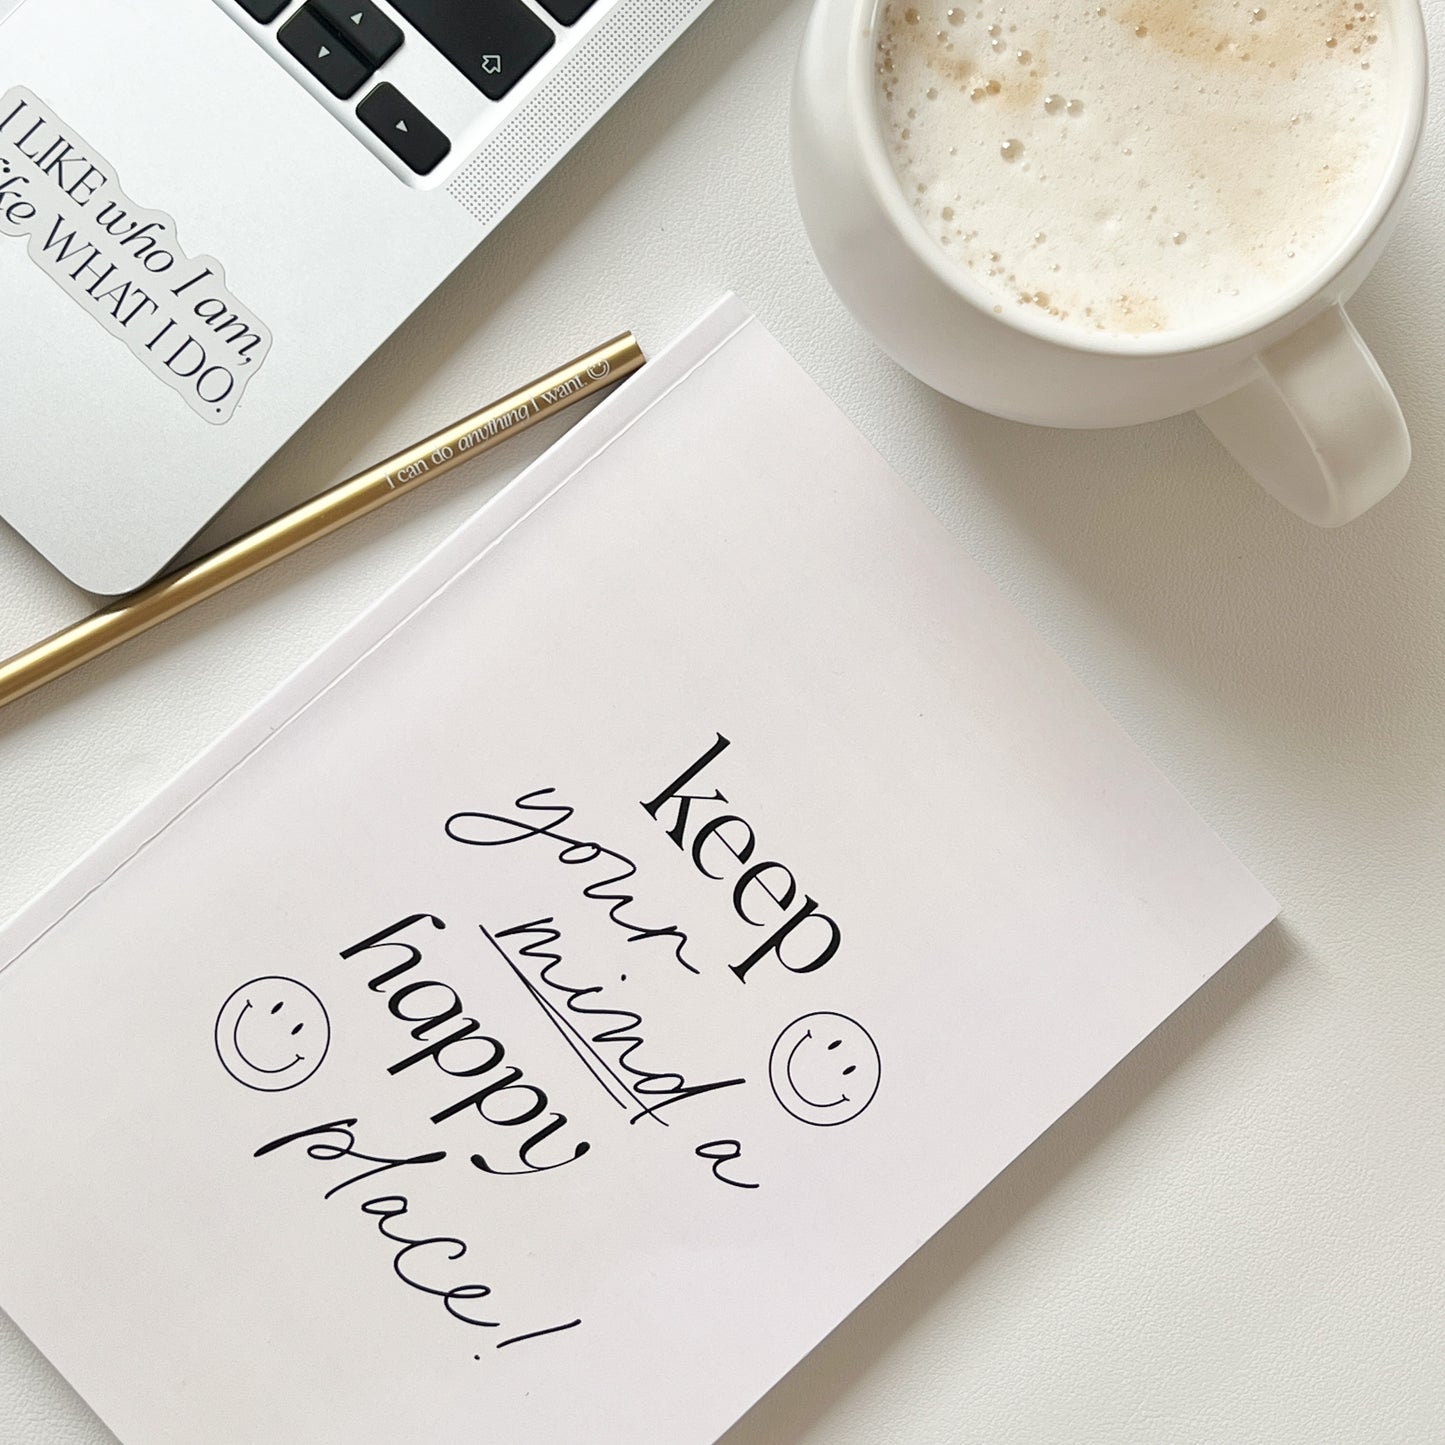 I LIKE who I am,
like WHAT I DO.
I can do anything I want.
keep
your
mind a
happy
place!